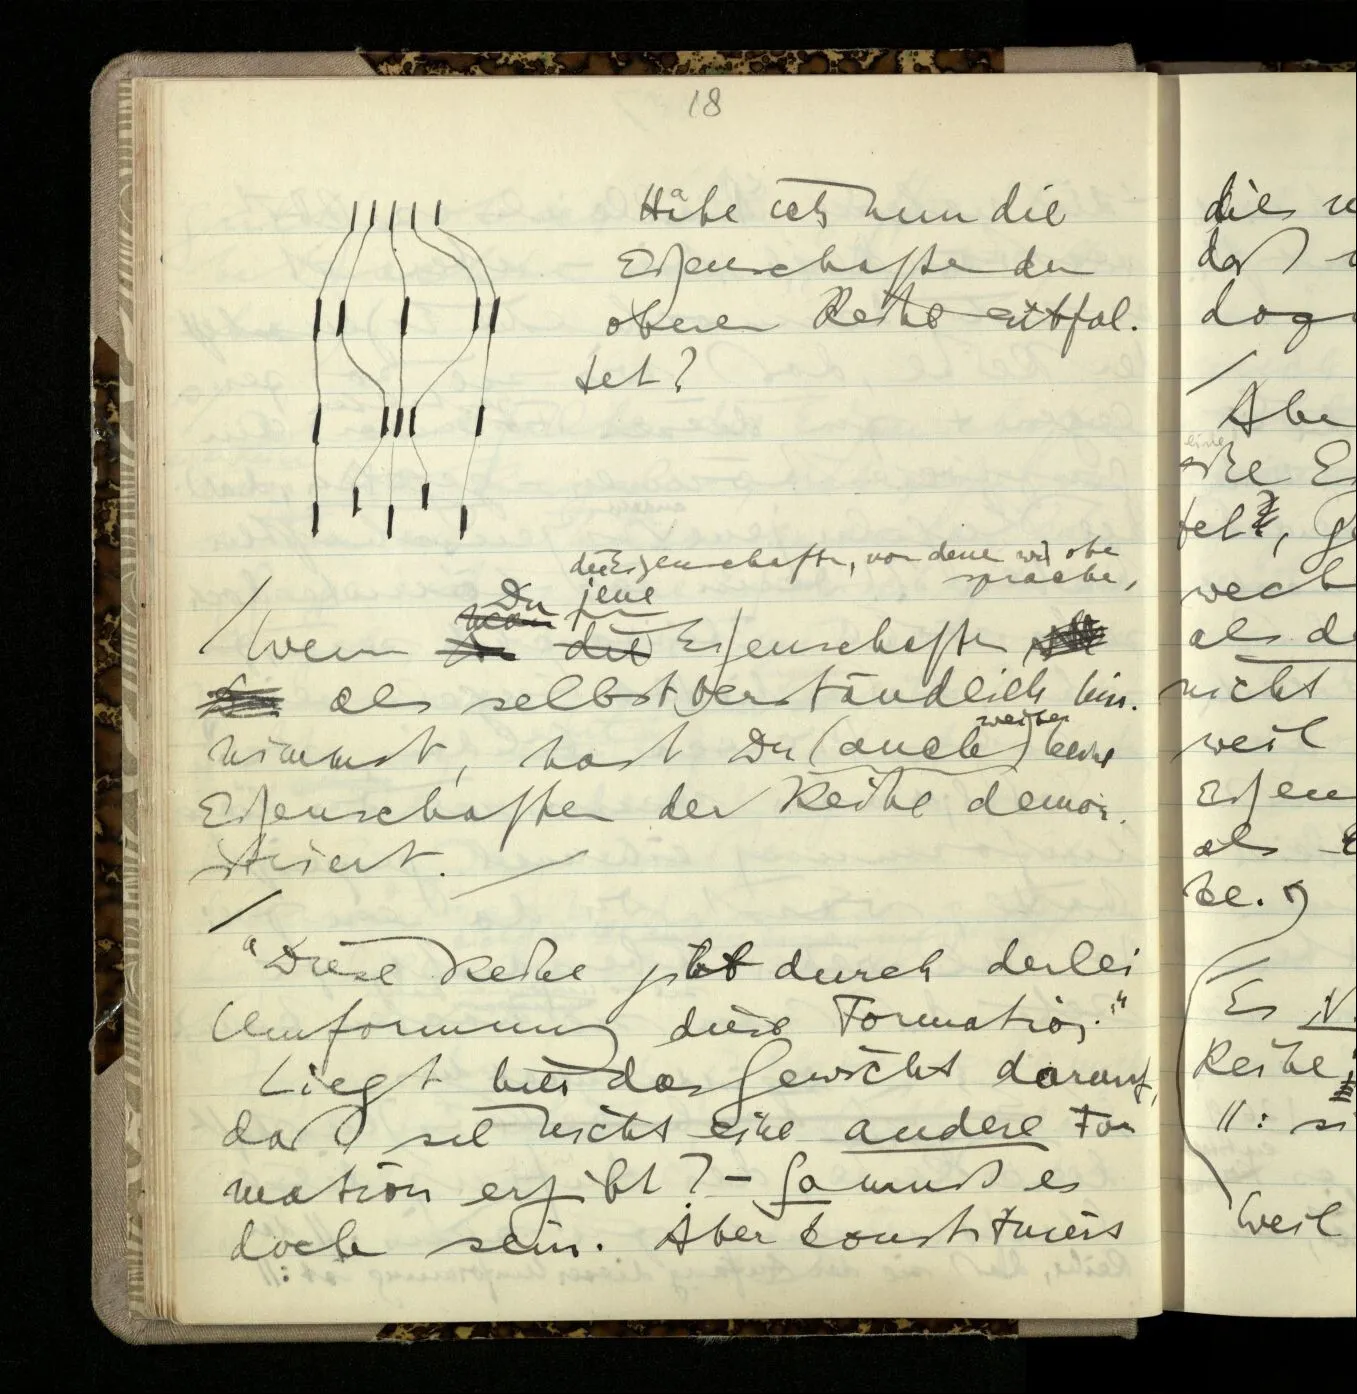 18
Habe ich nun die
Eigenschaften der
oberen Reihe entfal-
tet?
die Eigenschaften, von denen wir oben
sprachen,
Du jene
man
/ Wenn die Eigenschaften
als selbstverständlich hin-
weiter
nimmst, hast Du (auch) keine
Eigenschaften der Reihe demon-
striert. /
/
"Diese Reihe gibt durch derlei
Umformung diese Formation."
Liegt hier das Gewicht darauf,
daß sie nicht eine andere For
mation ergibt? – So muß es
doch sein. Aber konstituiert
dies
daß
Aber
eine
E
tet,
als
nicht
weil
Eigen
als
Es
Reihe
":
Weil